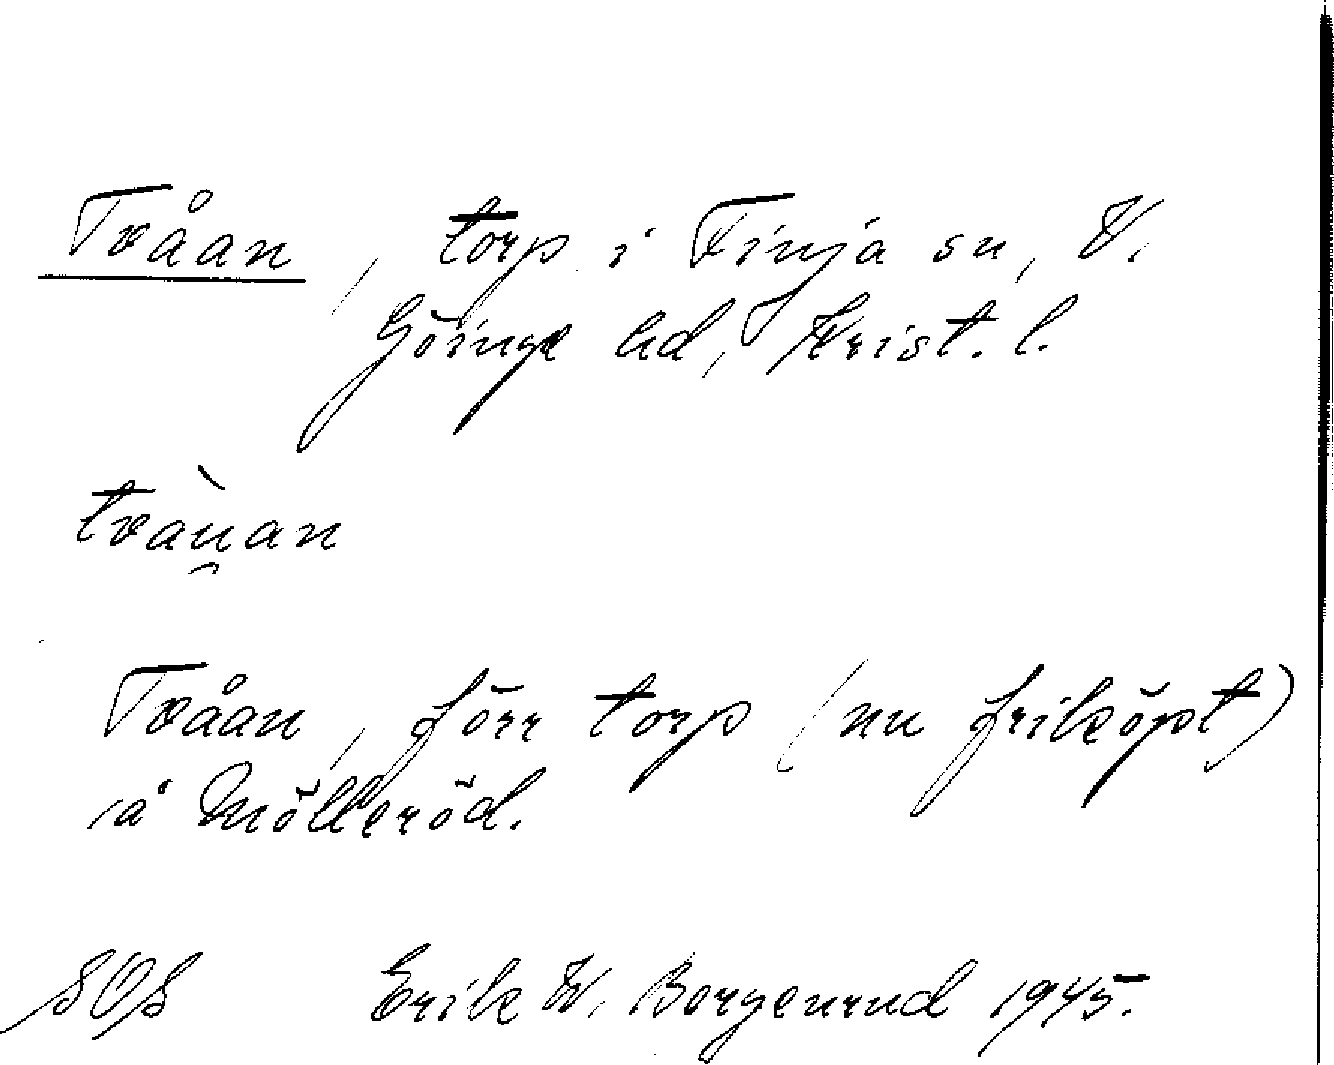 Tvåan, torp i Finja sn, V.
Göinge hd, Krist. l.
tvàu̯an
Tvåan, förr torp (nu friköpt)
å Mölleröd.
SOS Erik W. Borgenrud 1945.